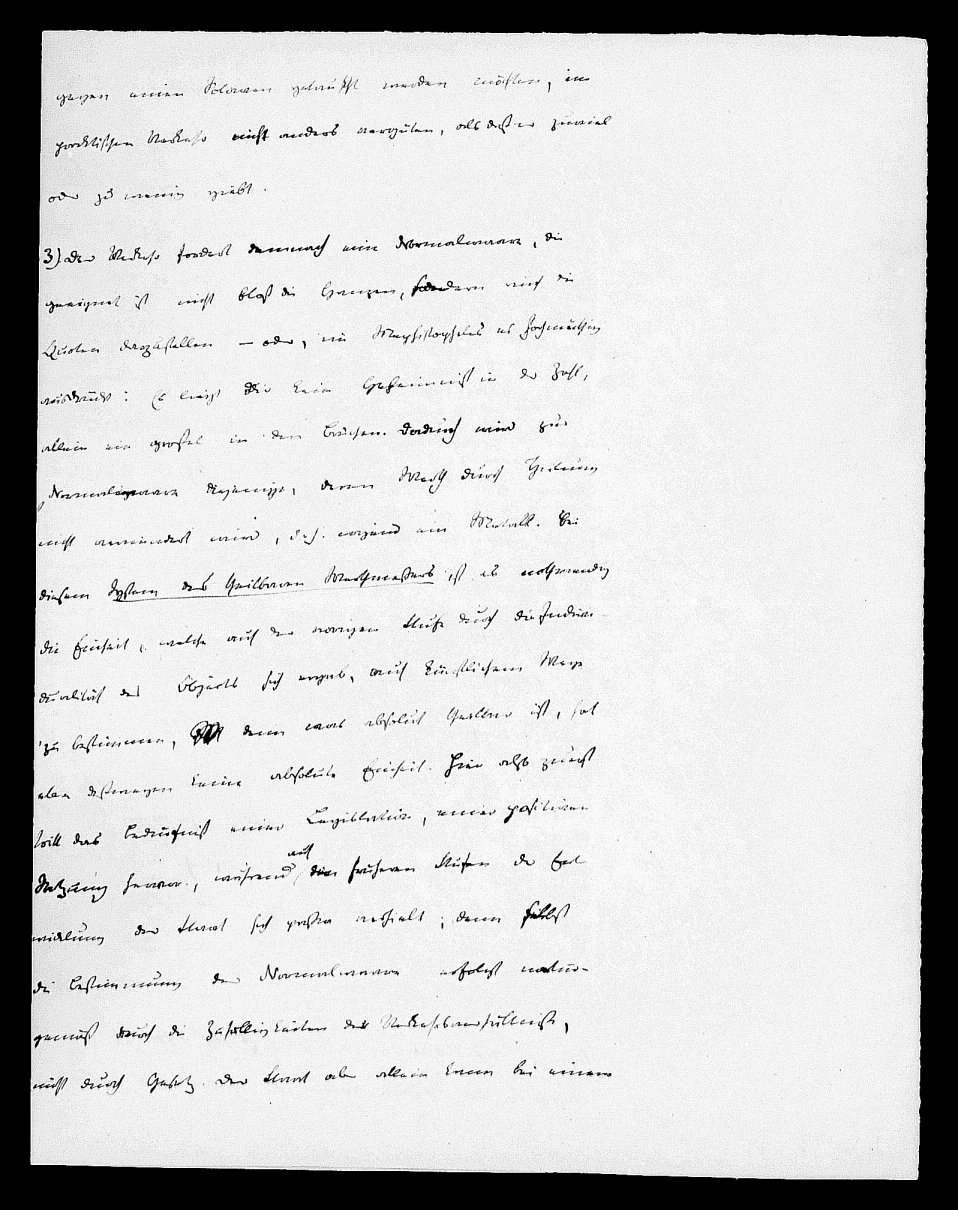 gegen einen Sclaven getauscht werden möchten, im
praktischen Verkehr nicht anders vergüten, als daß er zuviel
oder zu wenig giebt.
3) Der Verkehr fordert demnach eine Normalwaare, die
geeignet ist nicht bloß die Ganzen, sondern auch die
Quoten darzustellen – oder, wie Mephistopheles es
ausdrückt: Es liegt kein Geheimniß in der Zahl,
allein ein großes in den Brüchen. Dadurch wird zur
Normalwaare diejenige, deren Werth durch Theilung
nicht vermindert wird, d.h. irgend ein Metall. Bei
diesem System des theilbaren Werthmessers ist es nothwendig
die Einheit, welche auf der vorigen Stufe durch die Indivi-
dualität des Objects sich ergab, auf künstlichem Wege
zu bestimmen, denn was absolut theilbar ist, hat
eben deßwegen keine absolute Einheit. Hier also zuerst
tritt das Bedürfniß einer Legislation, einer positiven
Satzung hervor, während auf den früheren Stufen der Ent
wicklung der Staat sich passiv verhielt; denn selbst
die Bestimmung der Normalwaare erfolgt natur-
gemäß durch die Zufälligkeiten der Verkehrsverhältnisse,
nicht durch Gesetz. Der Staat aber allein kann bei einem